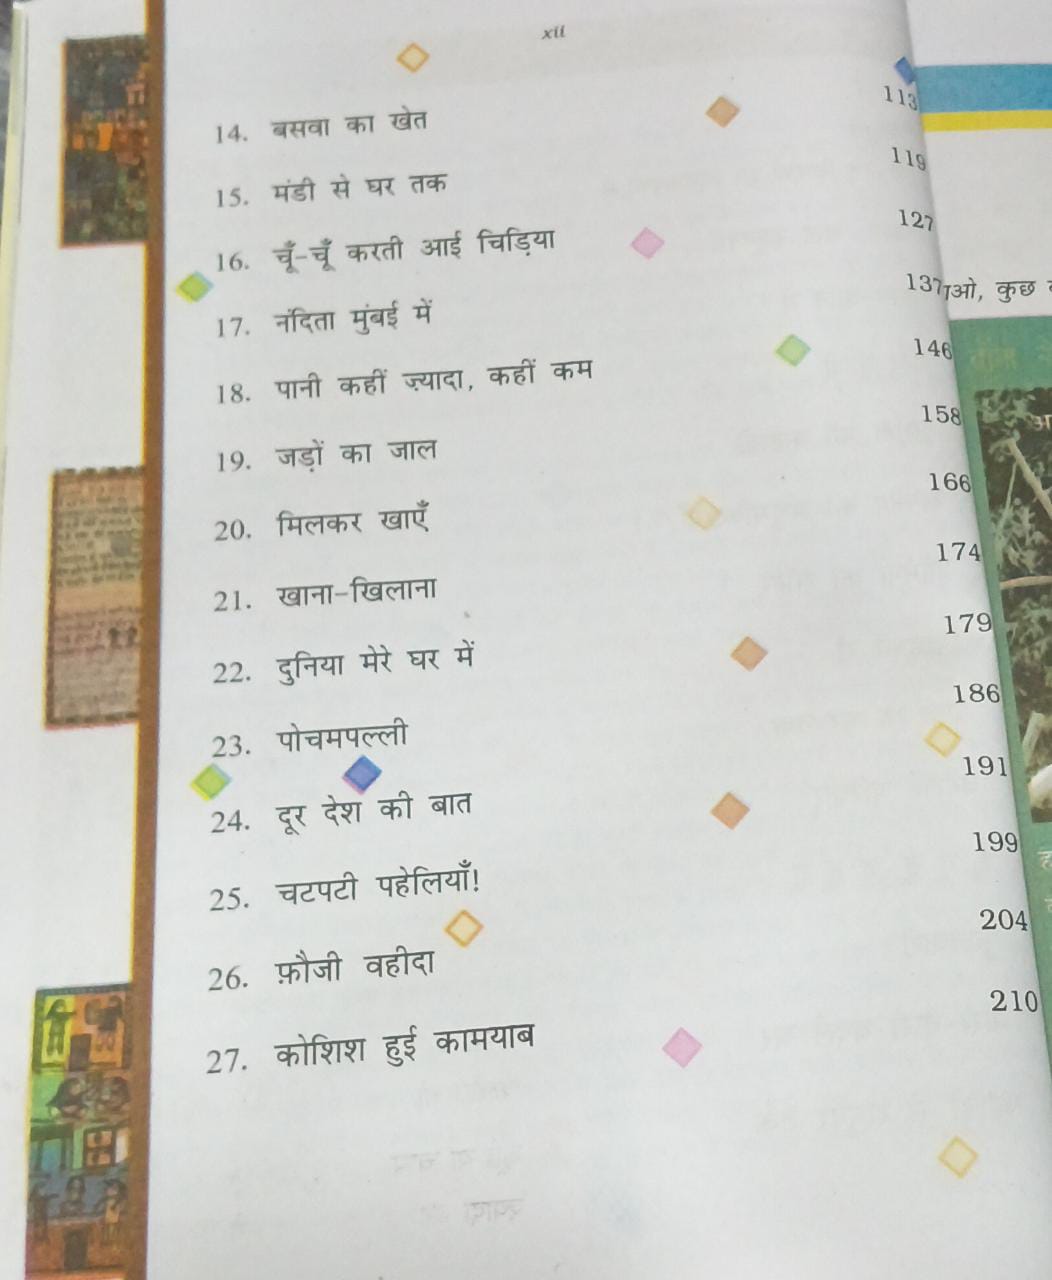 xii
14. बसवा का खेत 113
15. मंडी से घर तक 119
16. चूँ-चूँ करती आई चिड़िया 127
17. नंदिता मुंबई में 137
18. पानी कहीं ज़्यादा, कहीं कम 146
19. जड़ों का जाल 158
20. मिलकर खाएँ 166
21. खाना-खिलाना 174
22. दुनिया मेरे घर में 179
23. पोचमपल्ली 186
24. दूर देश की बात 191
25. चटपटी पहेलियाँ! 199
26. फ़ौजी वहीदा 204
27. कोशिश हुई कामयाब 210
कुछ